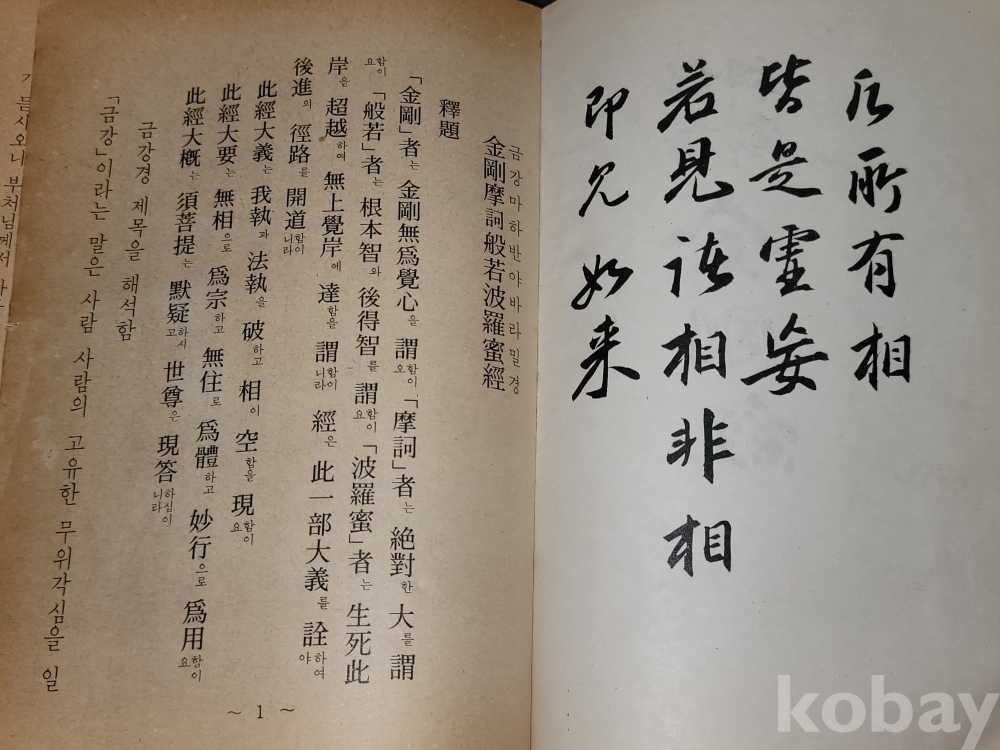 凡所有相
皆是虛妄
若見諸相非相
即見如来
금강마하반야바라밀경
金剛摩訶般若波羅蜜經
釋題
「金剛」者는 金剛無爲覺心을 謂함이오 「摩訶」者는 絶對한 大를 謂
함이요 「般若」者는 根本智와 後得智를 謂함이요 「波羅蜜」者는 生死此
岸을 超越하여 無上覺岸에 達함을 謂함이니라 經은 此一部大義를 詮하여야
後進의 徑路를 開道함이니라
此經大義는 我執과 法執을 破하고 相이 空함을 現함이요
此經大要는 無相으로 爲宗하고 無住로 爲體하고 妙行으로 爲用함이요
此經大概는 須菩提는 默疑하시고 世尊은 現答하심이니라
금강경 제목을 해석함
「금강」이라는 말은 사람 사람의 고유한 무위각심을 일
~ 1 ~
듣시오니 부처님께서
kobay